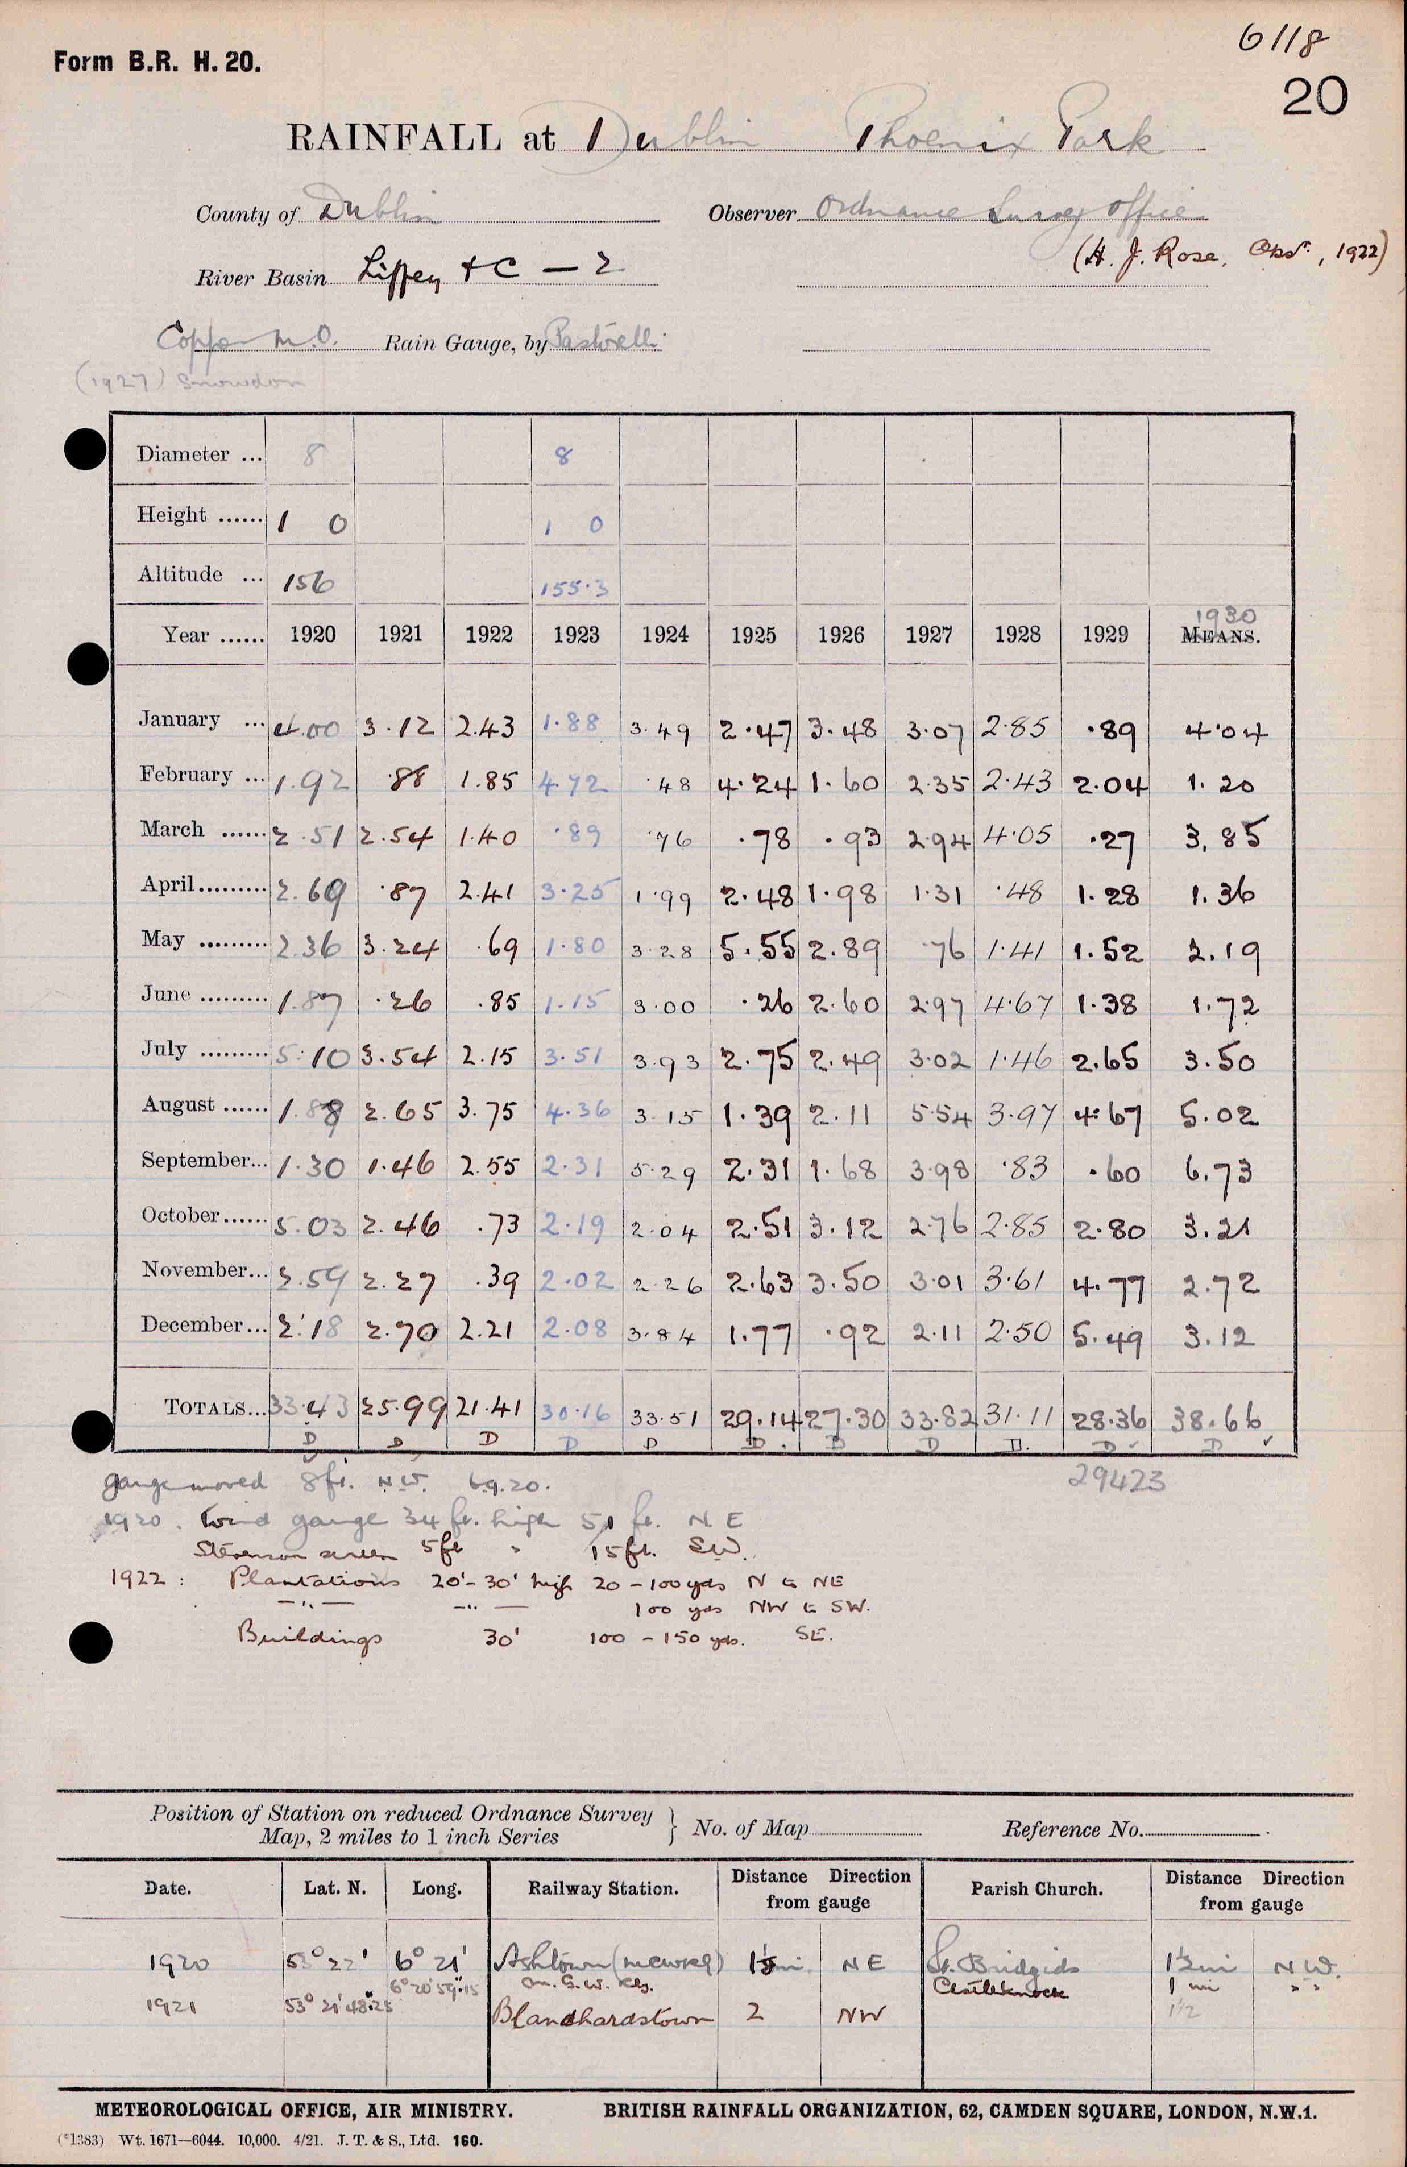 6118
Form B.R. H. 20.
20
RAINFALL at Dublin Phoenix Park
County of Dublin Observer Ordnance Survey Office
(H. J. Rose, Obsr., 1922)
River Basin Liffey + C — 2
Copper M.O. Rain Gauge, by Pastorelli
(1927) Snowdon
Diameter ... 8 8
Height ...... 1 0 1 0
Altitude ... 156 155.3
1930
Year ...... 1920 1921 1922 1923 1924 1925 1926 1927 1928 1929 MEANS.
January ... 4.00 3.12 2.43 1.88 3.49 2.47 3.48 3.07 2.85 .89 4.04
February ... 1.92 .88 1.85 4.72 .48 4.24 1.60 2.35 2.43 2.04 1.20
March ...... 2.51 2.54 1.40 .89 .76 .78 .93 2.94 4.05 .27 3.85
April......... 2.69 .87 2.41 3.25 1.99 2.48 1.98 1.31 .48 1.28 1.36
May ......... 2.36 3.24 .69 1.80 3.28 5.55 2.89 .76 1.41 1.52 2.19
June ......... 1.87 .26 .85 1.15 3.00 .26 2.60 2.97 4.67 1.38 1.72
July ......... 5.10 3.54 2.15 3.51 3.93 2.75 2.49 3.02 1.46 2.65 3.50
August ...... 1.88 2.65 3.75 4.36 3.15 1.39 2.11 5.54 3.97 4.67 5.02
September... 1.30 1.46 2.55 2.31 5.29 2.31 1.68 3.98 .83 .60 6.73
October...... 5.03 2.46 .73 2.19 2.04 2.51 3.12 2.76 2.85 2.80 3.21
November... 2.59 2.27 .39 2.02 2.26 2.63 3.50 3.01 3.61 4.77 2.72
December... 2.18 2.70 2.21 2.08 3.84 1.77 .92 2.11 2.50 5.49 3.12
TOTALS... 33.43 25.99 21.41 30.16 33.51 29.14 27.30 33.82 31.11 28.36 38.66
D D D D D D D D D D D
gauge moved 8 ft. N.W. 6.9.20. 29423
1920. Wind gauge 34 ft. high 51 ft. N.E
Stevenson screen 5ft " 15ft. S.W.
1922 : Plantations 20'-30' high 20 - 100 yds N to NE
—"— —"— 100 yds NW to SW.
Buildings 30' 100 - 150 yds. SE.
Position of Station on reduced Ordnance Survey
Map, 2 miles to 1 inch Series } No. of Map Reference No.
Date. Lat. N. Long. Railway Station. Distance Direction from gauge Parish Church. Distance Direction from gauge
1920 53° 22' 6° 21' Ashtown mi. NE St. Bridgids 1½ mi N.W.
6° 20' 59".15 on G. W. Rly. Castleknock 1 mi " "
1921 53° 21' 48".25 Blandhardstown 2 NW 1½
METEOROLOGICAL OFFICE, AIR MINISTRY. BRITISH RAINFALL ORGANIZATION, 62, CAMDEN SQUARE, LONDON, N.W.1.
(*1383) Wt. 1671—6044. 10,000. 4/21. J. T. & S., Ltd. 160.